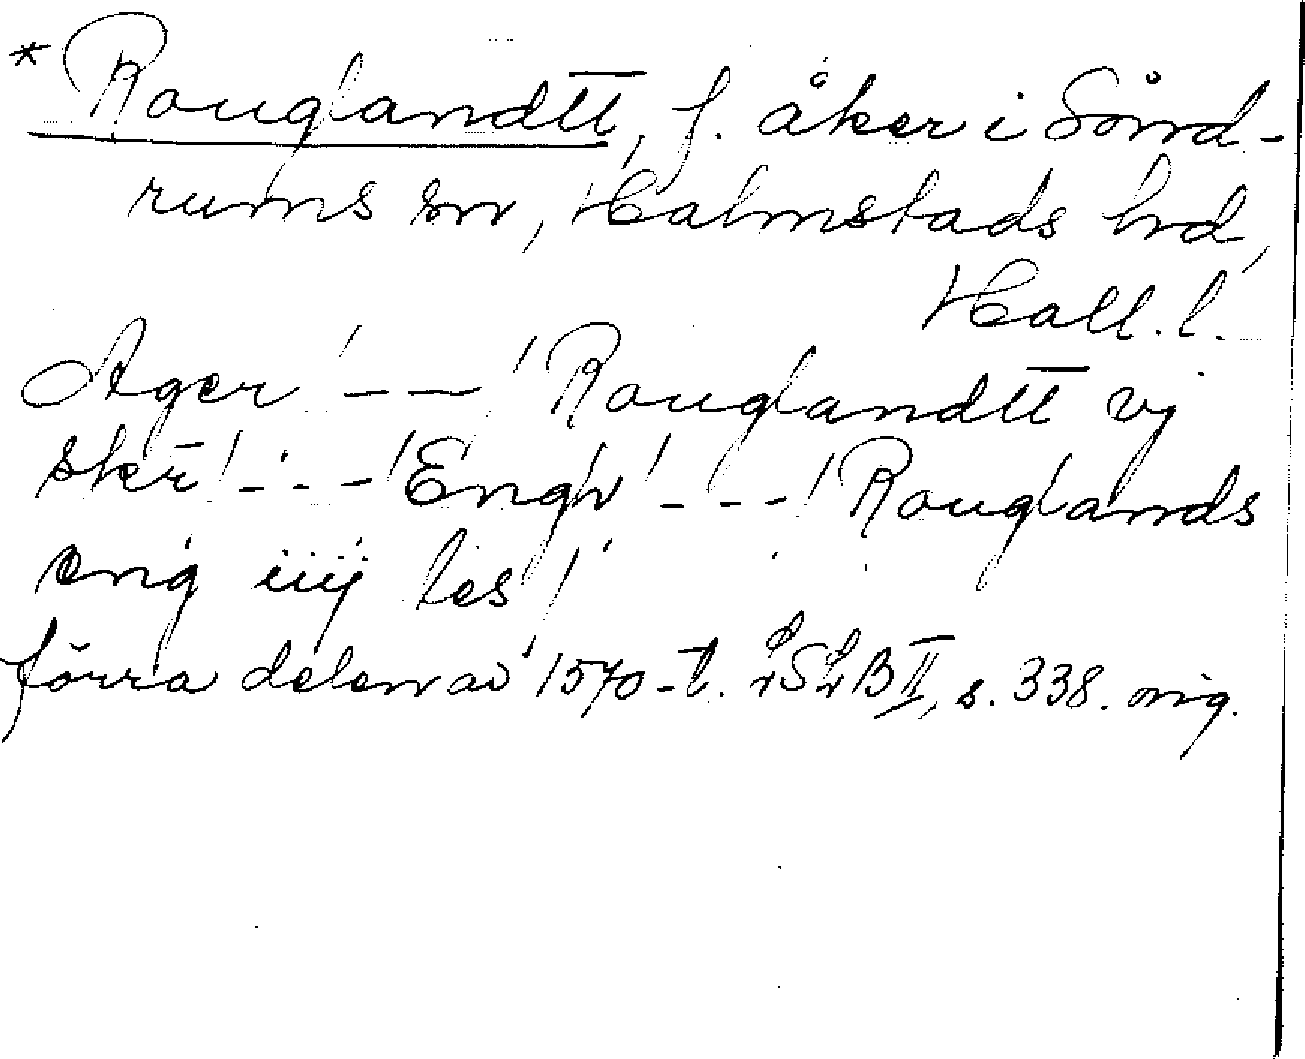 * Rouglandtt, f. åker i Sönd-
rums sn, Halmstads hd,
Hall. l.
Ager' - - 'Rouglandtt vj
skr̄' - - - 'Engh' - - - 'Rouglands
eng iiij les'
förra delen av 1570-t. LSLB II, s. 338. orig.